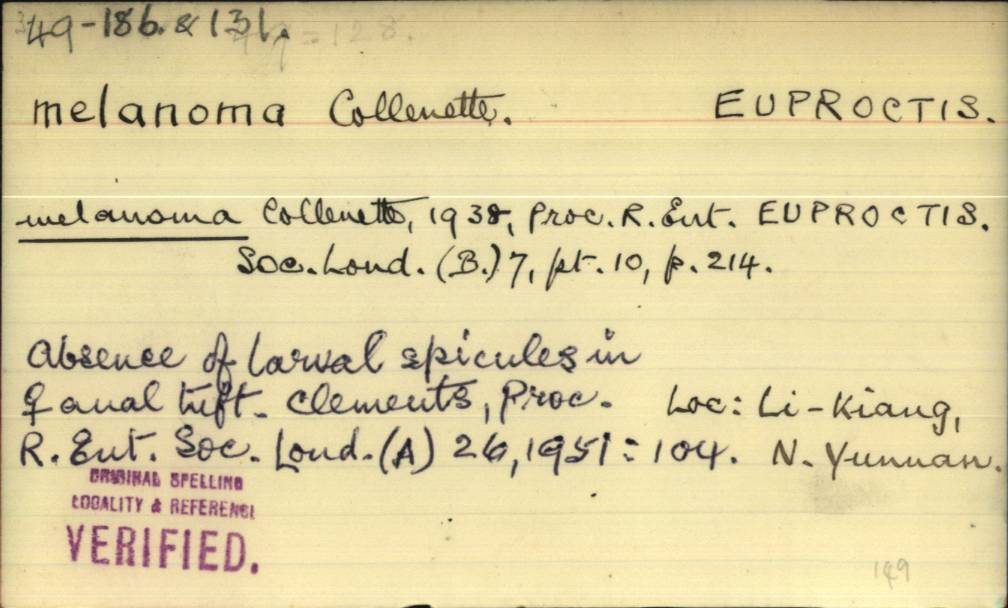 349-186. & 131.
melanoma Collenette. EUPROCTIS.
melanoma Collenette, 1938, Proc. R. Ent. EUPROCTIS.
Soc. Lond. (B.) 7, pt. 10, p. 214.
Absence of larval spicules in
♀ anal tuft. Clements, Proc. Loc: Li-Kiang,
R. Ent. Soc. Lond. (A) 26, 1951: 104. N. Yunnan.
ORIGINAL SPELLING
LOCALITY & REFERENCE
VERIFIED.
149